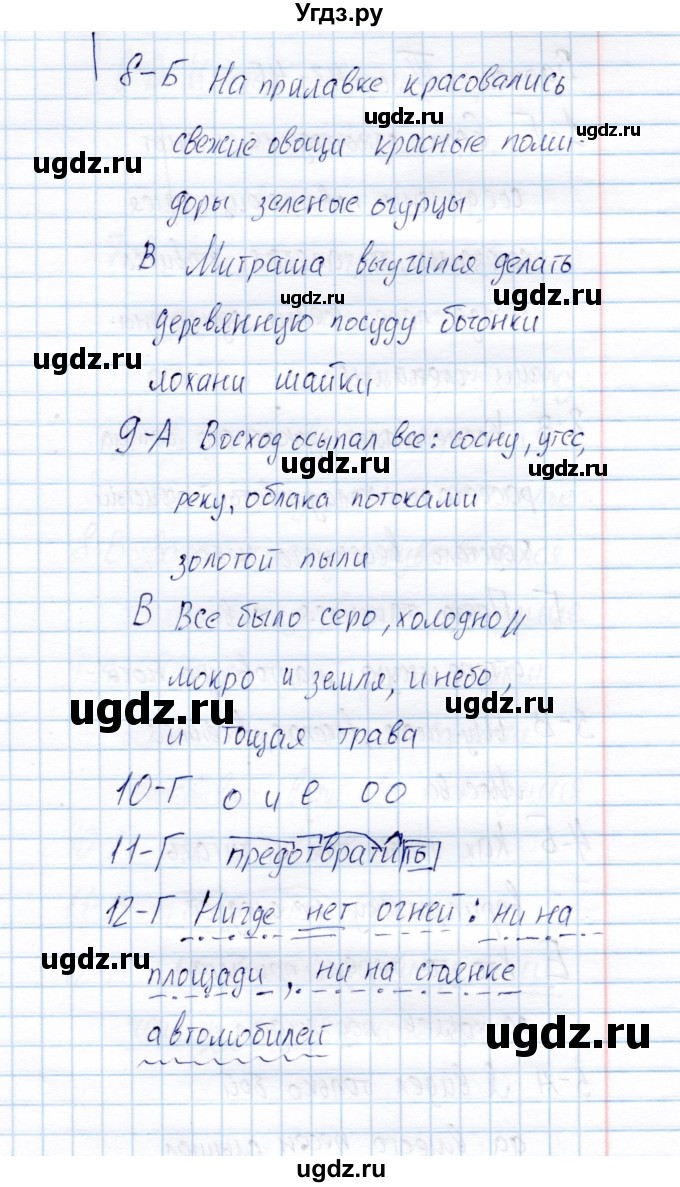 Угдз.ру
8-Б На прилавке красовались
ugdz.ru ugdz.ru
свежие овощи красные поми-
ugdz.ru
доры зеленые огурцы
В Митраша выучился делать
ugdz.ru ugdz.ru
деревянную посуду бочонки
ugdz.ru
лохани шайки
9-А Восход осыпал все: сосну, утес,
ugdz.ru ugdz.ru
реку, облака потоками
золотой пыли
В Все было серо, холодно
мокро и земля, и небо,
ugdz.ru ugdz.ru
и тощая трава
10-Г о и е о о
11-Г предотвратить
12-Г Нигде нет огней: ни на
ugdz.ru
площади, ни на стоянке
автомобилей
ugdz.ru
ugdz.ru